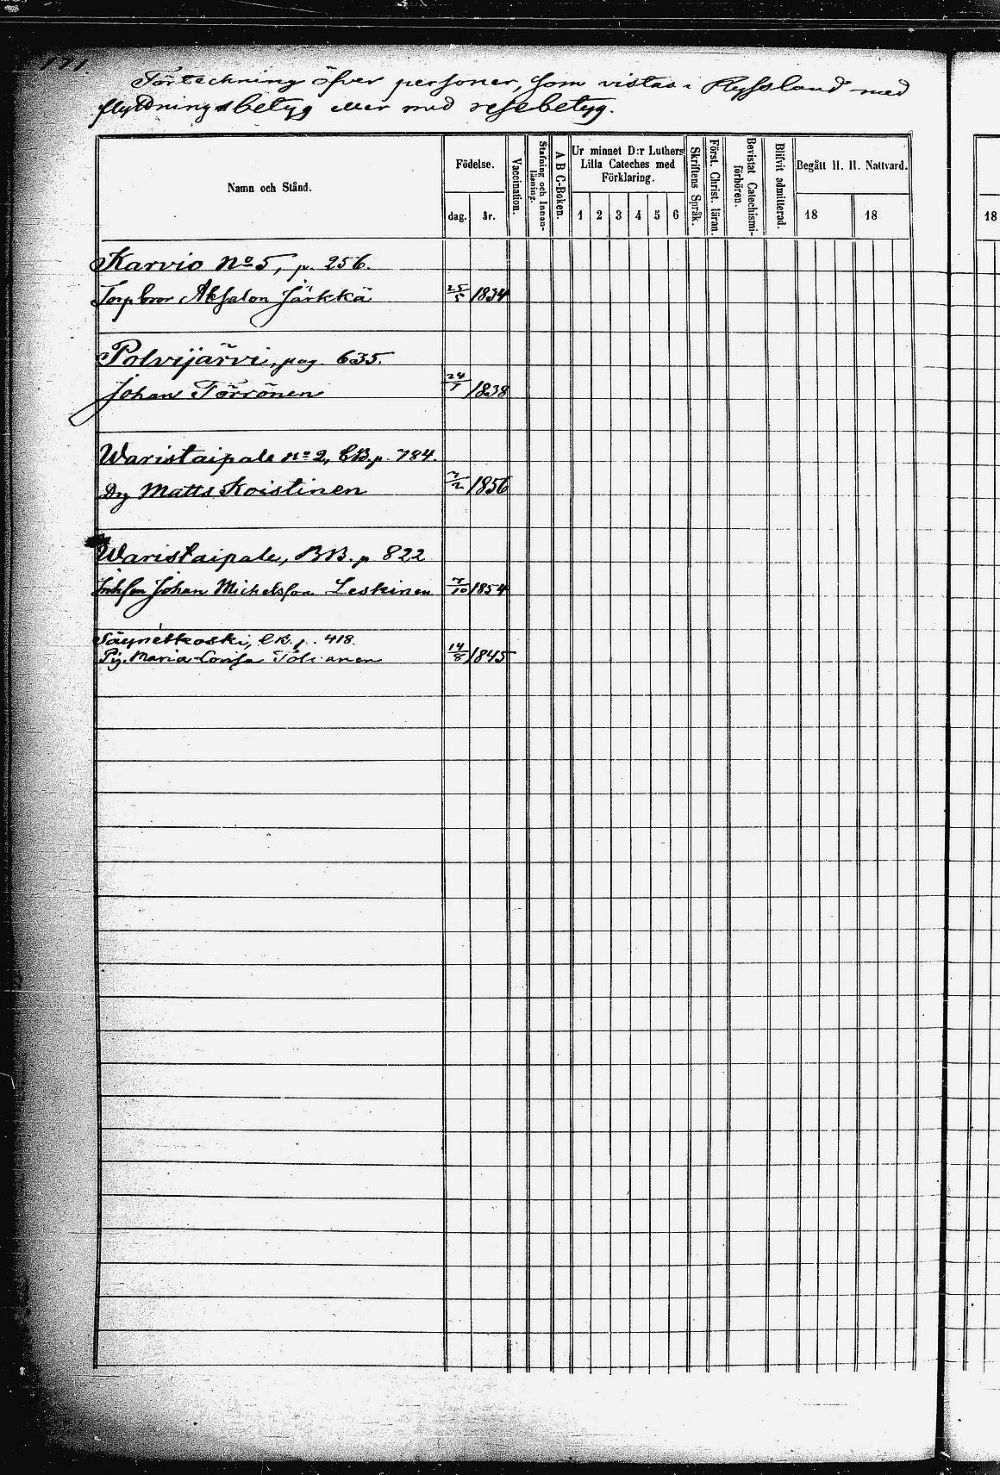 171.
Förteckning öfver personer, som vistas i Ryssland med
flyttningsbetyg eller med resebetyg.
Namn och Stånd.
Födelse.
dag.
år.
Vaccination.
Stafning och Innan-
läsning.
A B C-Boken.
Ur minnet D:r Luthers
Lilla Cateches med
Förklaring.
1 2 3 4 5 6
Skriftens Språk.
Först. Christ. läran.
Bevistat Catechismi-
förhören.
Blifvit admitterad.
Begått H. H. Nattvard.
18
18
18
Karvio No 5, p. 256.
Torpbror Absalon Järkkä 25/5 1834
Polvijärvi, pag. 635.
Johan Törrönen 1838
Waristaipale no 2, CB. p. 784.
Dg Matts Koistinen 7/2 1856
Waristaipale, BB. p 822
Johan Michelsson Leskinen 7/10 1854
Säynetkoski, CB. p. 418.
Pig. Maria Lovisa 14/8 1845